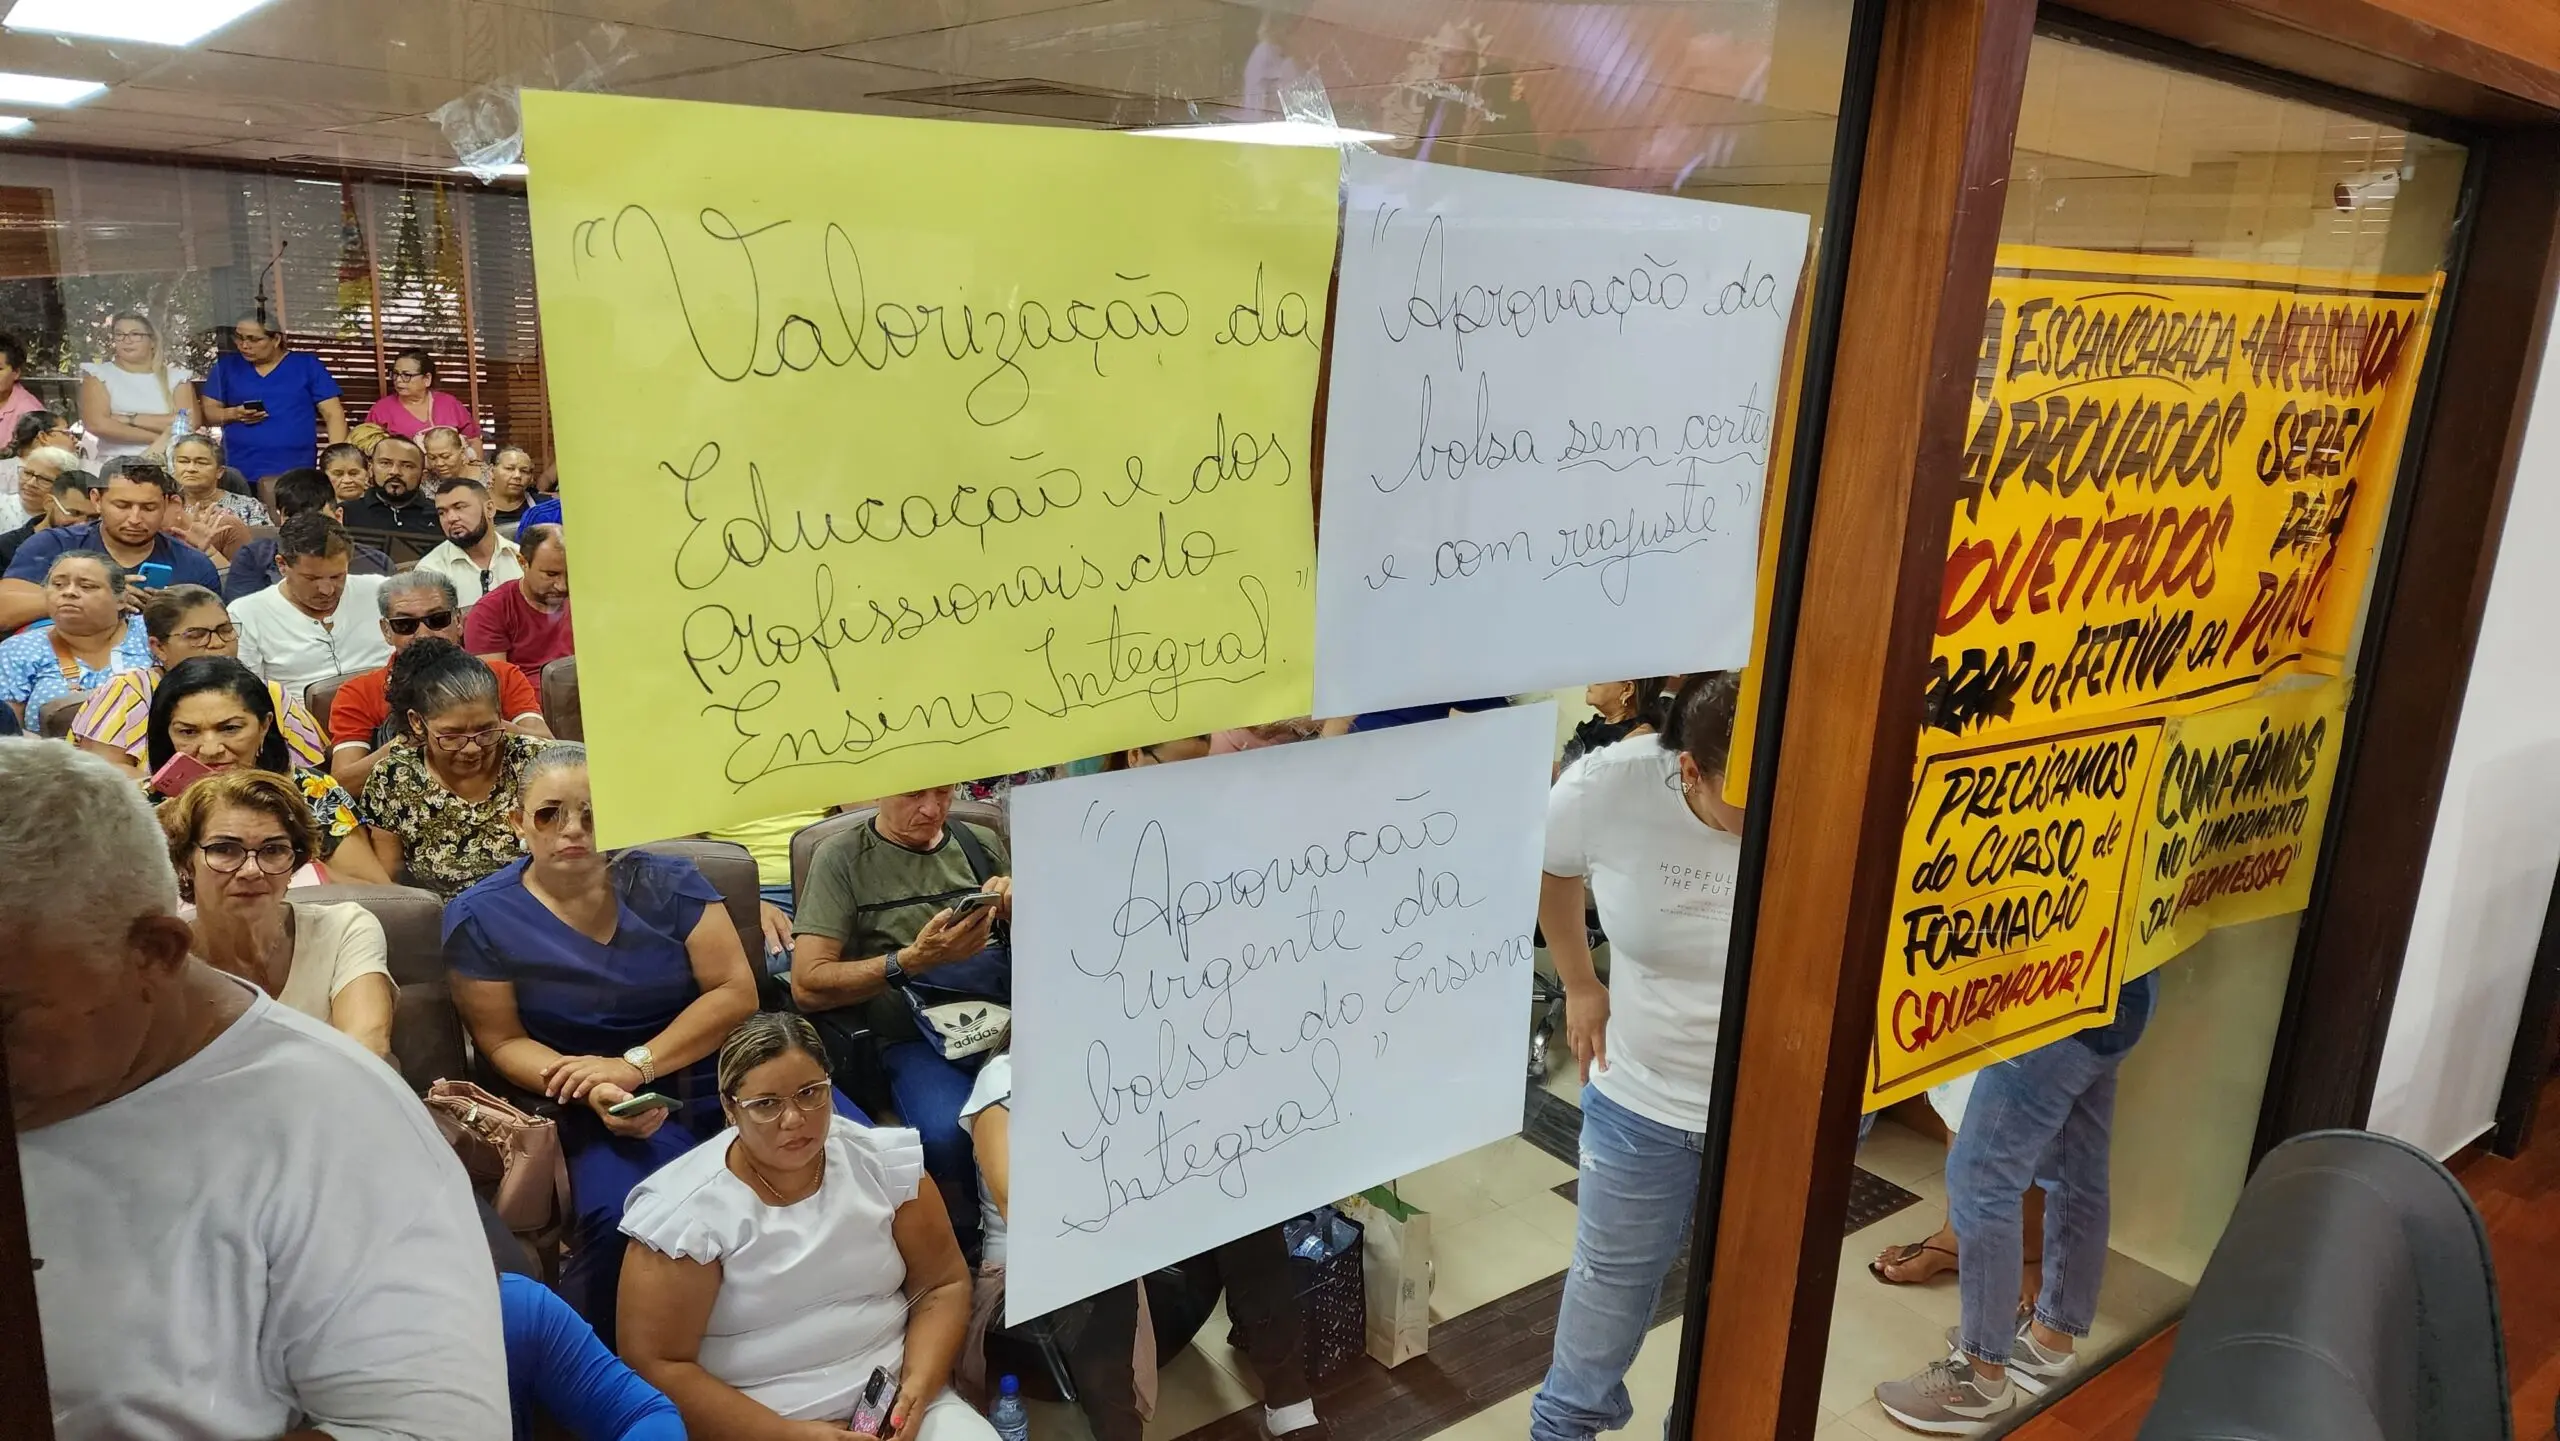 "Valorização da
Educação e dos
Profissionais do
Ensino Integral."
"Aprovação da
bolsa sem cortes
e com reajuste."
"Aprovação
urgente da
bolsa do Ensino
Integral."
ESCANCARADA
APROVADOS
O EFETIVO DA
PRECISAMOS
do CURSO de
FORMAÇÃO
GOVERNADOR!
"CONFIAMOS
NO CUMPRIMENTO
DA PROMESSA"
HOPEFUL
THE FUT
adidas